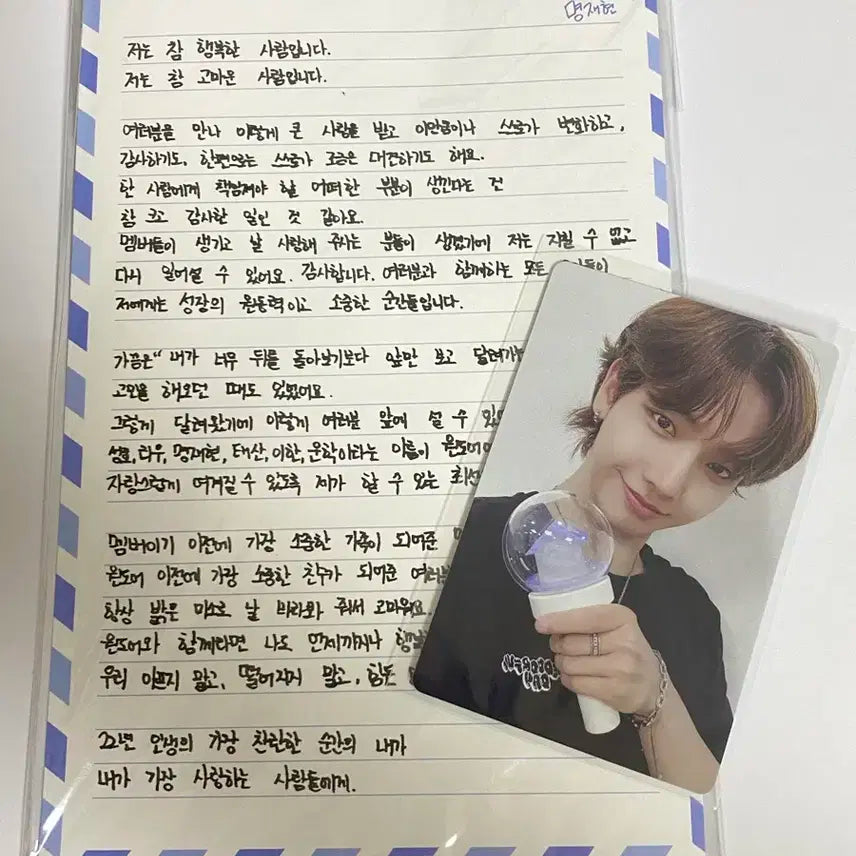 명재현
저는 참 행복한 사람입니다.
저는 참 고마운 사람입니다.
여러분을 만나 이렇게 큰 사랑을 받고 이만큼이나 스스로가 변화하고,
감사하기도, 한편으로는 스스로가 조금은 대견하기도 해요.
한 사람에게 책임져야 할 어떠한 부분이 생긴다는 건
참 크고 감사한 일인 것 같아요.
멤버들이 생기고 날 사랑해 주시는 분들이 생겼기에 저는 지칠 수 없고
다시 일어설 수 있어요. 감사합니다. 여러분과 함께하는 모든
저에게는 성장의 원동력이고 소중한 순간들입니다.
가끔은 "내가 너무 뒤를 돌아보기보다 앞만 보고
고민을 해오던 때도 있었어요.
그렇게 달려왔기에 이렇게 여러분 앞에 설 수
성호, 리우, 명재현, 태산, 이한, 운학이라는 이름이
자랑스럽게 여겨질 수 있도록 제가 할 수 있는
멤버이기 이전에 가장 소중한 가족이 되어준
원도어 이전에 가장 소중한 친구가 되어준
항상 밝은 미소로 날 바라봐 줘서 고마워요.
원도어와 함께라면 나도 언제까지나
우리 아프지 말고, 떨어지지 말고,
22년 인생의 가장 찬란한 순간의 내가
내가 가장 사랑하는 사람들에게.